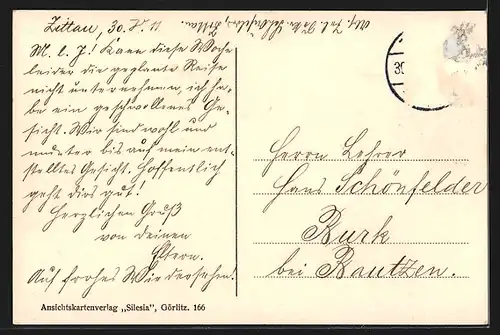 Zittau, 30. IV. 11
M. l. J.! Kann diese Woche
leider die geplante Reise
nicht unternehmen, ich ha-
be ein geschwollenes Ge-
sicht. Wir sind wohl und
munter bis auf mein ent-
stelltes Gesicht. Hoffentlich
geht dies gut!
Herzlichen Gruß
von deinen
Eltern.
Auf frohes Wiedersehen.
30
Herrn Lehrer
Hans Schönfelder
Burk
bei Bautzen.
Ansichtskartenverlag „Silesia", Görlitz. 166